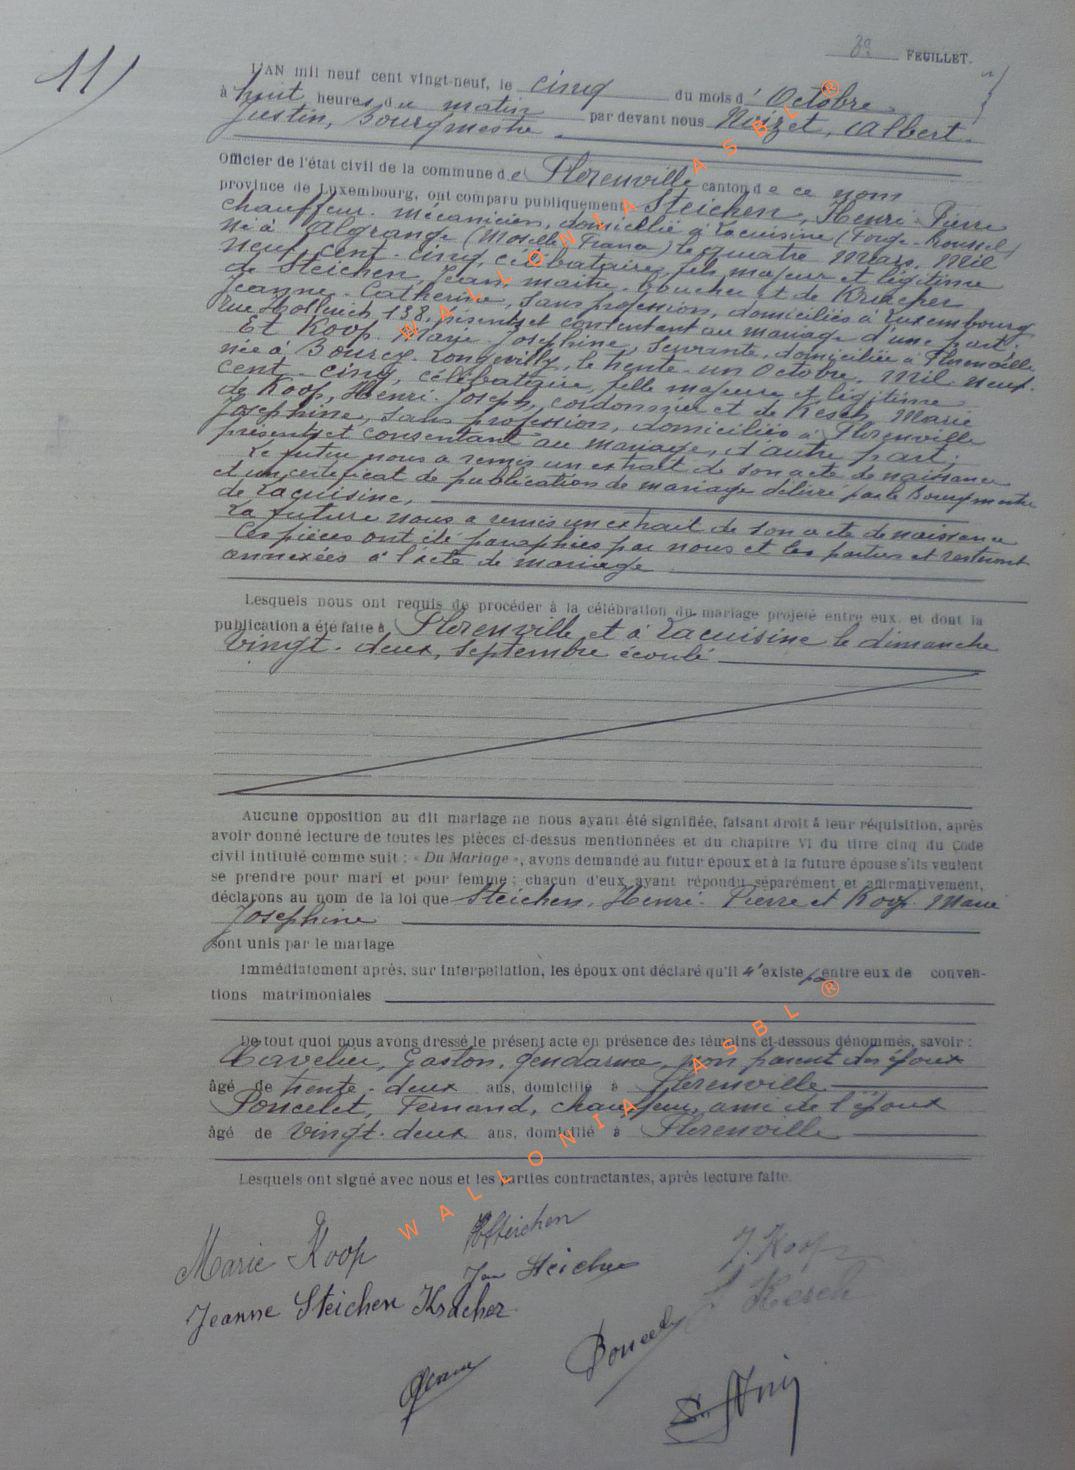 11)
3e FEUILLET.
L'AN mil neuf cent vingt-neuf, le cinq du mois d' Octobre
à huit heures du matin par devant nous Noizet, Albert
Justin, Bourgmestre
Officier de l'état civil de la commune de Florenville canton de ce nom
province de Luxembourg, ont comparu publiquement Steichen, Henri-Pierre
chauffeur-mécanicien, domicilié à Lacuisine (Forge-Roussel)
né à Algrange (Moselle France) le quatre Mars, Mil
neuf-cent-cinq, célibataire, fils majeur et légitime
de Steichen, Jean, maître-boucher et de Kracher
Jeanne-Catherine, sans profession, domiciliés à Luxembourg
rue Hollerich, 138, présents et consentant au mariage d'une part.
Et Koop Marie-Joséphine, Servante, domiciliée à Florenville
née à Bourcy-Longvilly, le trente-un Octobre, Mil-neuf-
cent-cinq, célibataire, fille majeure et légitime
de Koop, Henri-Joseph, cordonnier et de Kesch, Marie
Joséphine, sans profession, domiciliés à Florenville
présents et consentant au mariage, d'autre part.
Le futur nous a remis un extrait de son acte de naissance
et un certificat de publication de mariage délivré par le Bourgmestre
de Lacuisine,
La future nous a remis un extrait de son acte de naissance
Ces pièces ont été paraphées par nous et les parties et resteront
annexées à l'acte de mariage
Lesquels nous ont requis de procéder à la célébration du mariage projeté entre eux, et dont la
publication a été faite à Florenville et à Lacuisine le dimanche
vingt-deux, Septembre écoulé
Aucune opposition au dit mariage ne nous ayant été signifiée, faisant droit à leur réquisition, après
avoir donné lecture de toutes les pièces ci-dessus mentionnées et du chapitre VI du titre cinq du Code
civil intitulé comme suit : « Du Mariage », avons demandé au futur époux et à la future épouse s'ils veulent
se prendre pour mari et pour femme ; chacun d'eux ayant répondu séparément et affirmativement,
déclarons au nom de la loi que Steichen, Henri-Pierre et Koop Marie
Joséphine
sont unis par le mariage
Immédiatement après, sur interpellation, les époux ont déclaré qu'il n'existe pas entre eux de conven-
tions matrimoniales
De tout quoi nous avons dressé le présent acte en présence des témoins ci-dessous dénommés, savoir :
Gaston, gendarme, non parent des époux
âgé de trente-deux ans, domicilié à Florenville
Poncelet, Fernand, chauffeur, ami de l'époux
âgé de vingt-deux ans, domicilié à Florenville
Lesquels ont signé avec nous et les parties contractantes, après lecture faite.
Marie Koop
HSteichen
J. Koop
Jean Steichen
J. Kesch
Jeanne Steichen Kracher
Poncelet
WALLONIA ASBL ®
WALLONIA ASBL ®